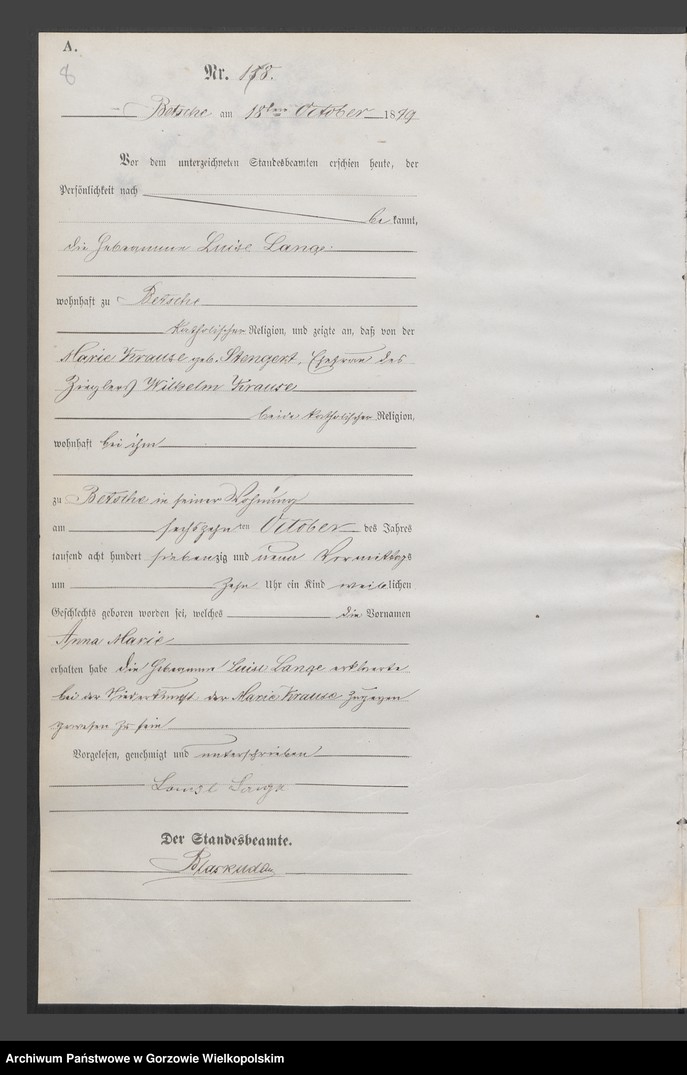 A.
8
Nr. 178.
Betsche am 18ten October 1879
Vor dem unterzeichneten Standesbeamten erschien heute, der
Persönlichkeit nach
bekannt,
die Hebeamme Luise Lange
wohnhaft zu Betsche
katholischer Religion, und zeigte an, daß von der
Marie Krause geb. Stengert, Ehefrau des
Zieglers Wilhelm Krause
beide katholischer Religion,
wohnhaft bei ihm
zu Betsche in seiner Wohnung
am sechszehnten October des Jahres
tausend acht hundert siebenzig und neun Vormittags
um zehn Uhr ein Kind weiblichen
Geschlechts geboren worden sei, welches die Vornamen
Anna Marie
erhalten habe die Hebeamme Luise Lange erklaerte
bei der Niederkunft der Marie Krause zugegen
gewesen zu sein
Vorgelesen, genehmigt und unterschrieben
Lange
Der Standesbeamte.
Archiwum Państwowe w Gorzowie Wielkopolskim